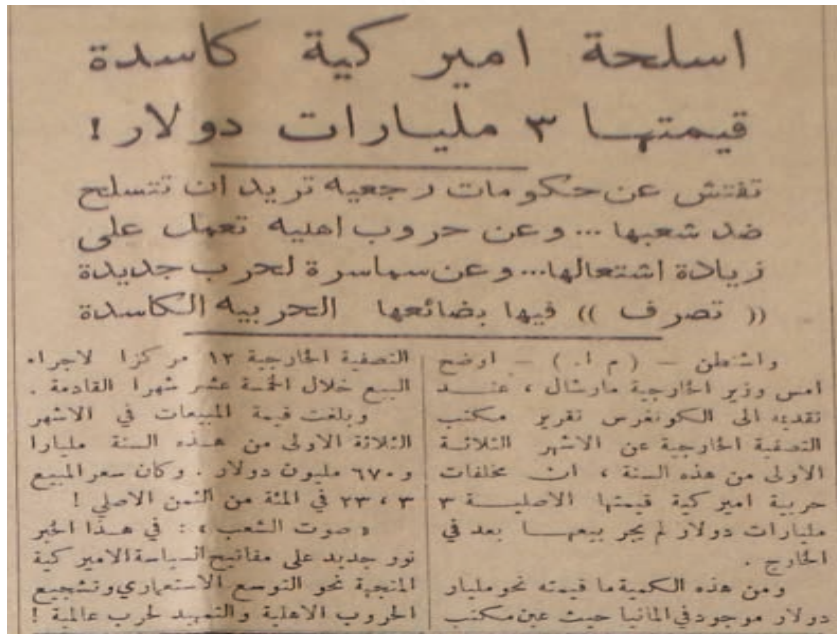 اسلحة اميركية كاسدة
قيمتها ٣ مليارات دولار !
تفتش عن حكومات رجعيه تريد ان تتسلح
ضد شعبها ... وعن حروب اهليه تعمل على
زيادة اشتعالها... وعن سماسرة لحرب جديدة
(( تصرف )) فيها بضائعها الحربيه الكاسدة
واشنطن – ( م ا. ) – اوضح
امس وزير الخارجية مارشال ، عند
تقديمه الى الكونغرس تقرير مكتب
التصفية الخارجية عن الاشهر الثلاثة
الاولى من هذه السنة ، ان مخلفات
حربية اميركية قيمتها الاصلية ٣
مليارات دولار لم يجر بيعها بعد في
الخارج .
ومن هذه الكمية ما قيمته نحو مليار
دولار موجود في المانيا حيث عين مكتب
التصفية الخارجية ١٢ مركزا لاجراء
البيع خلال الخمسة عشر شهرا القادمة .
وبلغت قيمة المبيعات في الاشهر
الثلاثة الاولى من هذه السنة مليارا
و ٦٧٠ مليون دولار . وكان سعر المبيع
٢٣،٣ في المئة من الثمن الاصلي !
« صوت الشعب » : في هذا الخبر
نور جديد على مفاتيح السياسة الاميركية
المتجهة نحو التوسع الاستعماري وتشجيع
الحروب الاهلية والتمهيد لحرب عالمية !